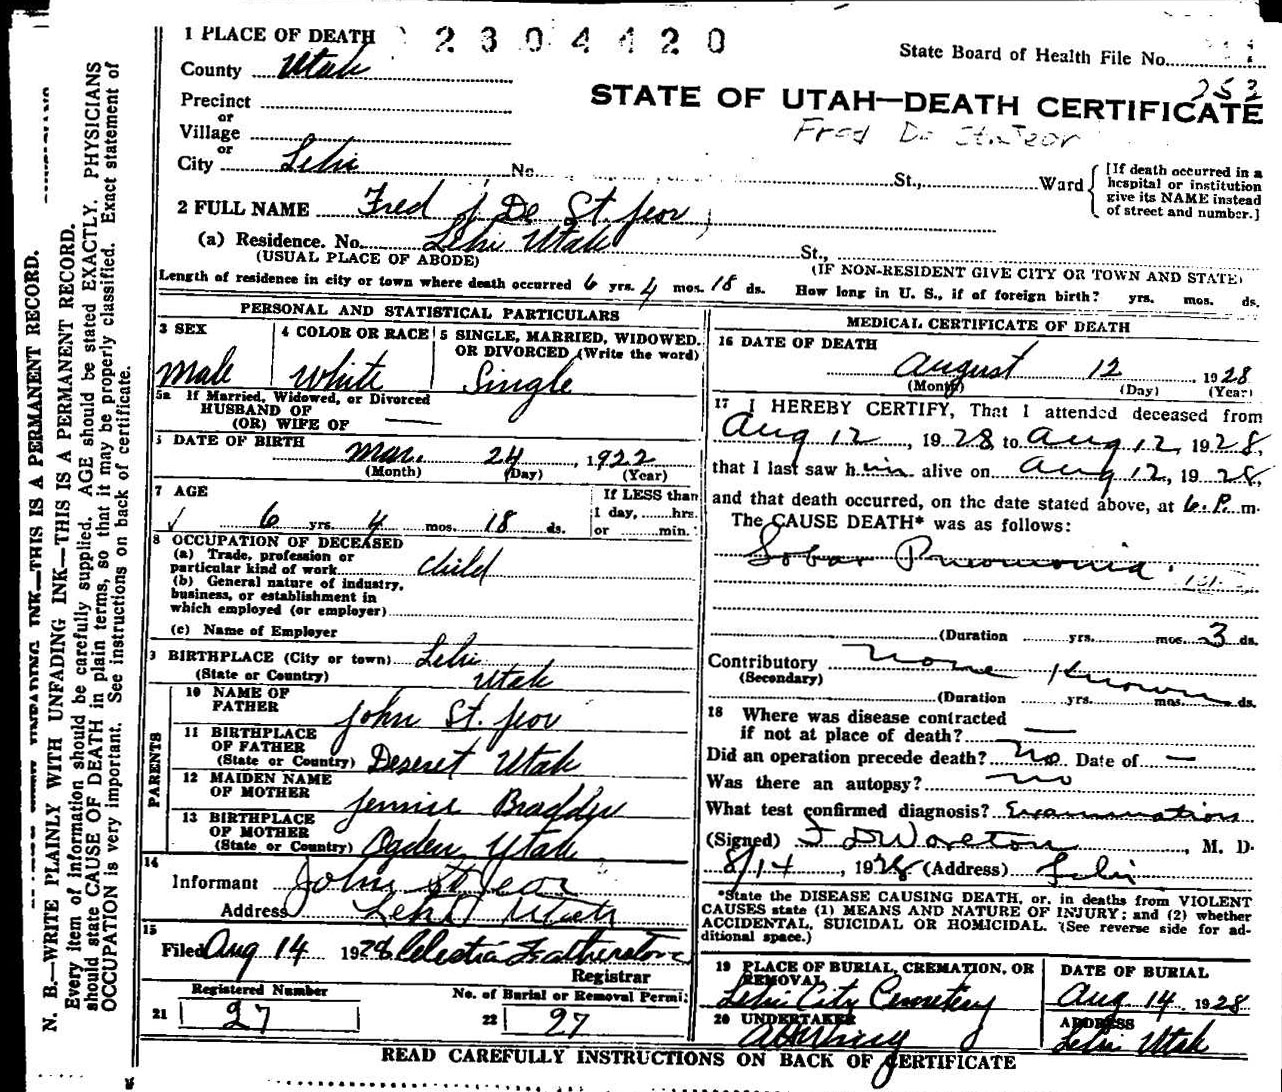 1 PLACE OF DEATH 2304420
State Board of Health File No.
County Utah
252
Precinct
STATE OF UTAH—DEATH CERTIFICATE
or
Village
Fred De St. Jeor
or
City Lehi No. St., Ward
[If death occurred in a hospital or institution give its NAME instead of street and number.]
2 FULL NAME Fred J. De St. Jeor
(a) Residence. No. Lehi Utah St.,
(USUAL PLACE OF ABODE) (IF NON-RESIDENT GIVE CITY OR TOWN AND STATE)
Length of residence in city or town where death occurred 6 yrs. 4 mos. 18 ds. How long in U. S., if of foreign birth? yrs. mos. ds.
PERSONAL AND STATISTICAL PARTICULARS
3 SEX
Male
4 COLOR OR RACE
White
5 SINGLE, MARRIED, WIDOWED. OR DIVORCED (Write the word)
Single
5a If Married, Widowed, or Divorced
HUSBAND OF
(OR) WIFE OF —
DATE OF BIRTH
Mar. 24, 1922
(Month) (Day) (Year)
7 AGE
6 yrs. 4 mos. 18 ds.
If LESS than
1 day, hrs.
or min.
8 OCCUPATION OF DECEASED
(a) Trade, profession or
particular kind of work child
(b) General nature of industry,
business, or establishment in
which employed (or employer)
(c) Name of Employer
9 BIRTHPLACE (City or town) Lehi
(State or Country) Utah
PARENTS
10 NAME OF
FATHER John St. Jeor
11 BIRTHPLACE
OF FATHER
(State or Country) Deseret Utah
12 MAIDEN NAME
OF MOTHER Jennie
13 BIRTHPLACE
OF MOTHER
(State or Country) Ogden Utah
14
Informant John St Jeor
Address Lehi Utah
15
Filed Aug 14 1928 Celestia Featherstone
Registrar
Registered Number
21 27
No. of Burial or Removal Permit
22 27
MEDICAL CERTIFICATE OF DEATH
16 DATE OF DEATH
August 12, 1928
(Month) (Day) (Year)
17 I HEREBY CERTIFY, That I attended deceased from
Aug 12, 1928, to Aug 12, 1928,
that I last saw him alive on Aug 12, 1928,
and that death occurred, on the date stated above, at 6. P. m.
The CAUSE DEATH* was as follows:
Lobar Pneumonia
(Duration yrs. mos. 3 ds.
Contributory None Known
(Secondary)
(Duration yrs. mos. ds.
18 Where was disease contracted
if not at place of death? —
Did an operation precede death? No Date of —
Was there an autopsy? no
What test confirmed diagnosis? Examination
(Signed) F D Worlton, M. D.
8/14, 1928 (Address) Lehi
*State the DISEASE CAUSING DEATH, or, in deaths from VIOLENT
CAUSES state (1) MEANS AND NATURE OF INJURY; and (2) whether
ACCIDENTAL, SUICIDAL OR HOMICIDAL. (See reverse side for ad-
ditional space.)
19 PLACE OF BURIAL, CREMATION, OR
REMOVAL
Lehi City Cemetery
DATE OF BURIAL
Aug 14 1928
20 UNDERTAKER
ADDRESS
Lehi Utah
READ CAREFULLY INSTRUCTIONS ON BACK OF CERTIFICATE
N. B.—WRITE PLAINLY WITH UNFADING INK—THIS IS A PERMANENT RECORD.
Every item of information should be carefully supplied. AGE should be stated EXACTLY. PHYSICIANS
should state CAUSE OF DEATH in plain terms, so that it may be properly classified. Exact statement of
OCCUPATION is very important. See instructions on back of certificate.